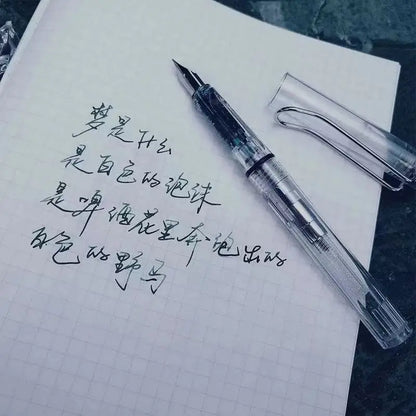 梦是什么
是白色的泡沫
是啤酒花里奔跑出的
白色的野马